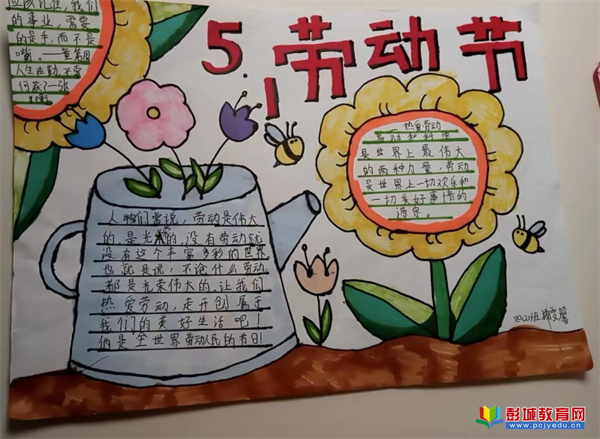 5.1劳动节
应该记住，我们
的事业，需要
的是手，而不是
嘴。——童第周
人生在勤，不索
何获？——张
热爱劳动
劳动和科学
是世界上最伟大
的两种力量，劳动
是世界上一切欢乐和
一切美好事情的
源泉。
人们常说，劳动是伟大
的，是光荣的，没有劳动就
没有这个丰富多彩的世界
也就是说，不论什么劳动
都是光荣伟大的，让我们
热爱劳动，走开创属于
我们的美好生活吧！
俩是全世界劳动人民的节日！
四(2)班
彭城教育网
www.pcjyedu.cn